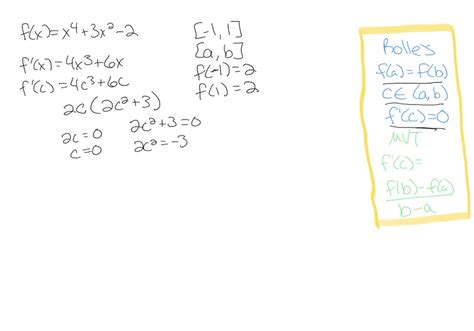 f(x)=x⁴+3x²-2
f'(x)=4x³+6x
f'(c)=4c³+6c
2c(2c²+3)
2c=0 2c²+3=0
c=0 2c²=-3
[-1,1]
[a,b]
f(-1)=2
f(1)=2
Rolles
f(a)=f(b)
c∈(a,b)
f'(c)=0
MVT
f'(c)=
f(b)-f(a)
b-a